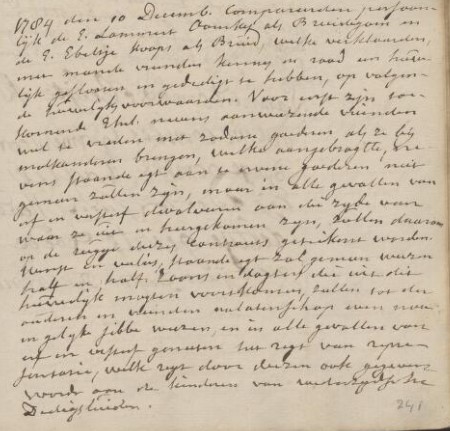 1784 den 10 Decemb. Compareerden persoon-
lijk de E. Lammert als Bruidegom en
de E. Ebeltje Koops als Bruid, welke verklaarden,
met mande vrunden kennis en raad een huwe-
lijk gesloten en gededigt te hebben, op volgen-
de huwelijksvoorwaarden. Voor eerst zijn toe-
komende Ehel. nevens aanwezende vrienden
wel te vreden met zodane goederen, als ze bij
malkanderen brengen, welke aangebragte,
staande egte aan te goederen niet
gemeen zullen zijn, maar in alle gevallen van
af in versterf devolveren aan die zijde van
waar ze in hergekomen zijn, zullen daarom
op de rugge dezes Contracts getekent worden.
Winst en verlies, staande egt zal gemeen wezen
half en half. Zoons en dogters die uit dit
huwelijk mogten voortkomen, zullen tot der
ouderen en vrunden nalatenschap even na
en gelijke sibbe wezen, en in alle gevallen van
af in versterf genieten het regt van repre-
sentatie, welk regt door dezen ook gegeven
word aan de kinderen van
Dedigslieden.
241